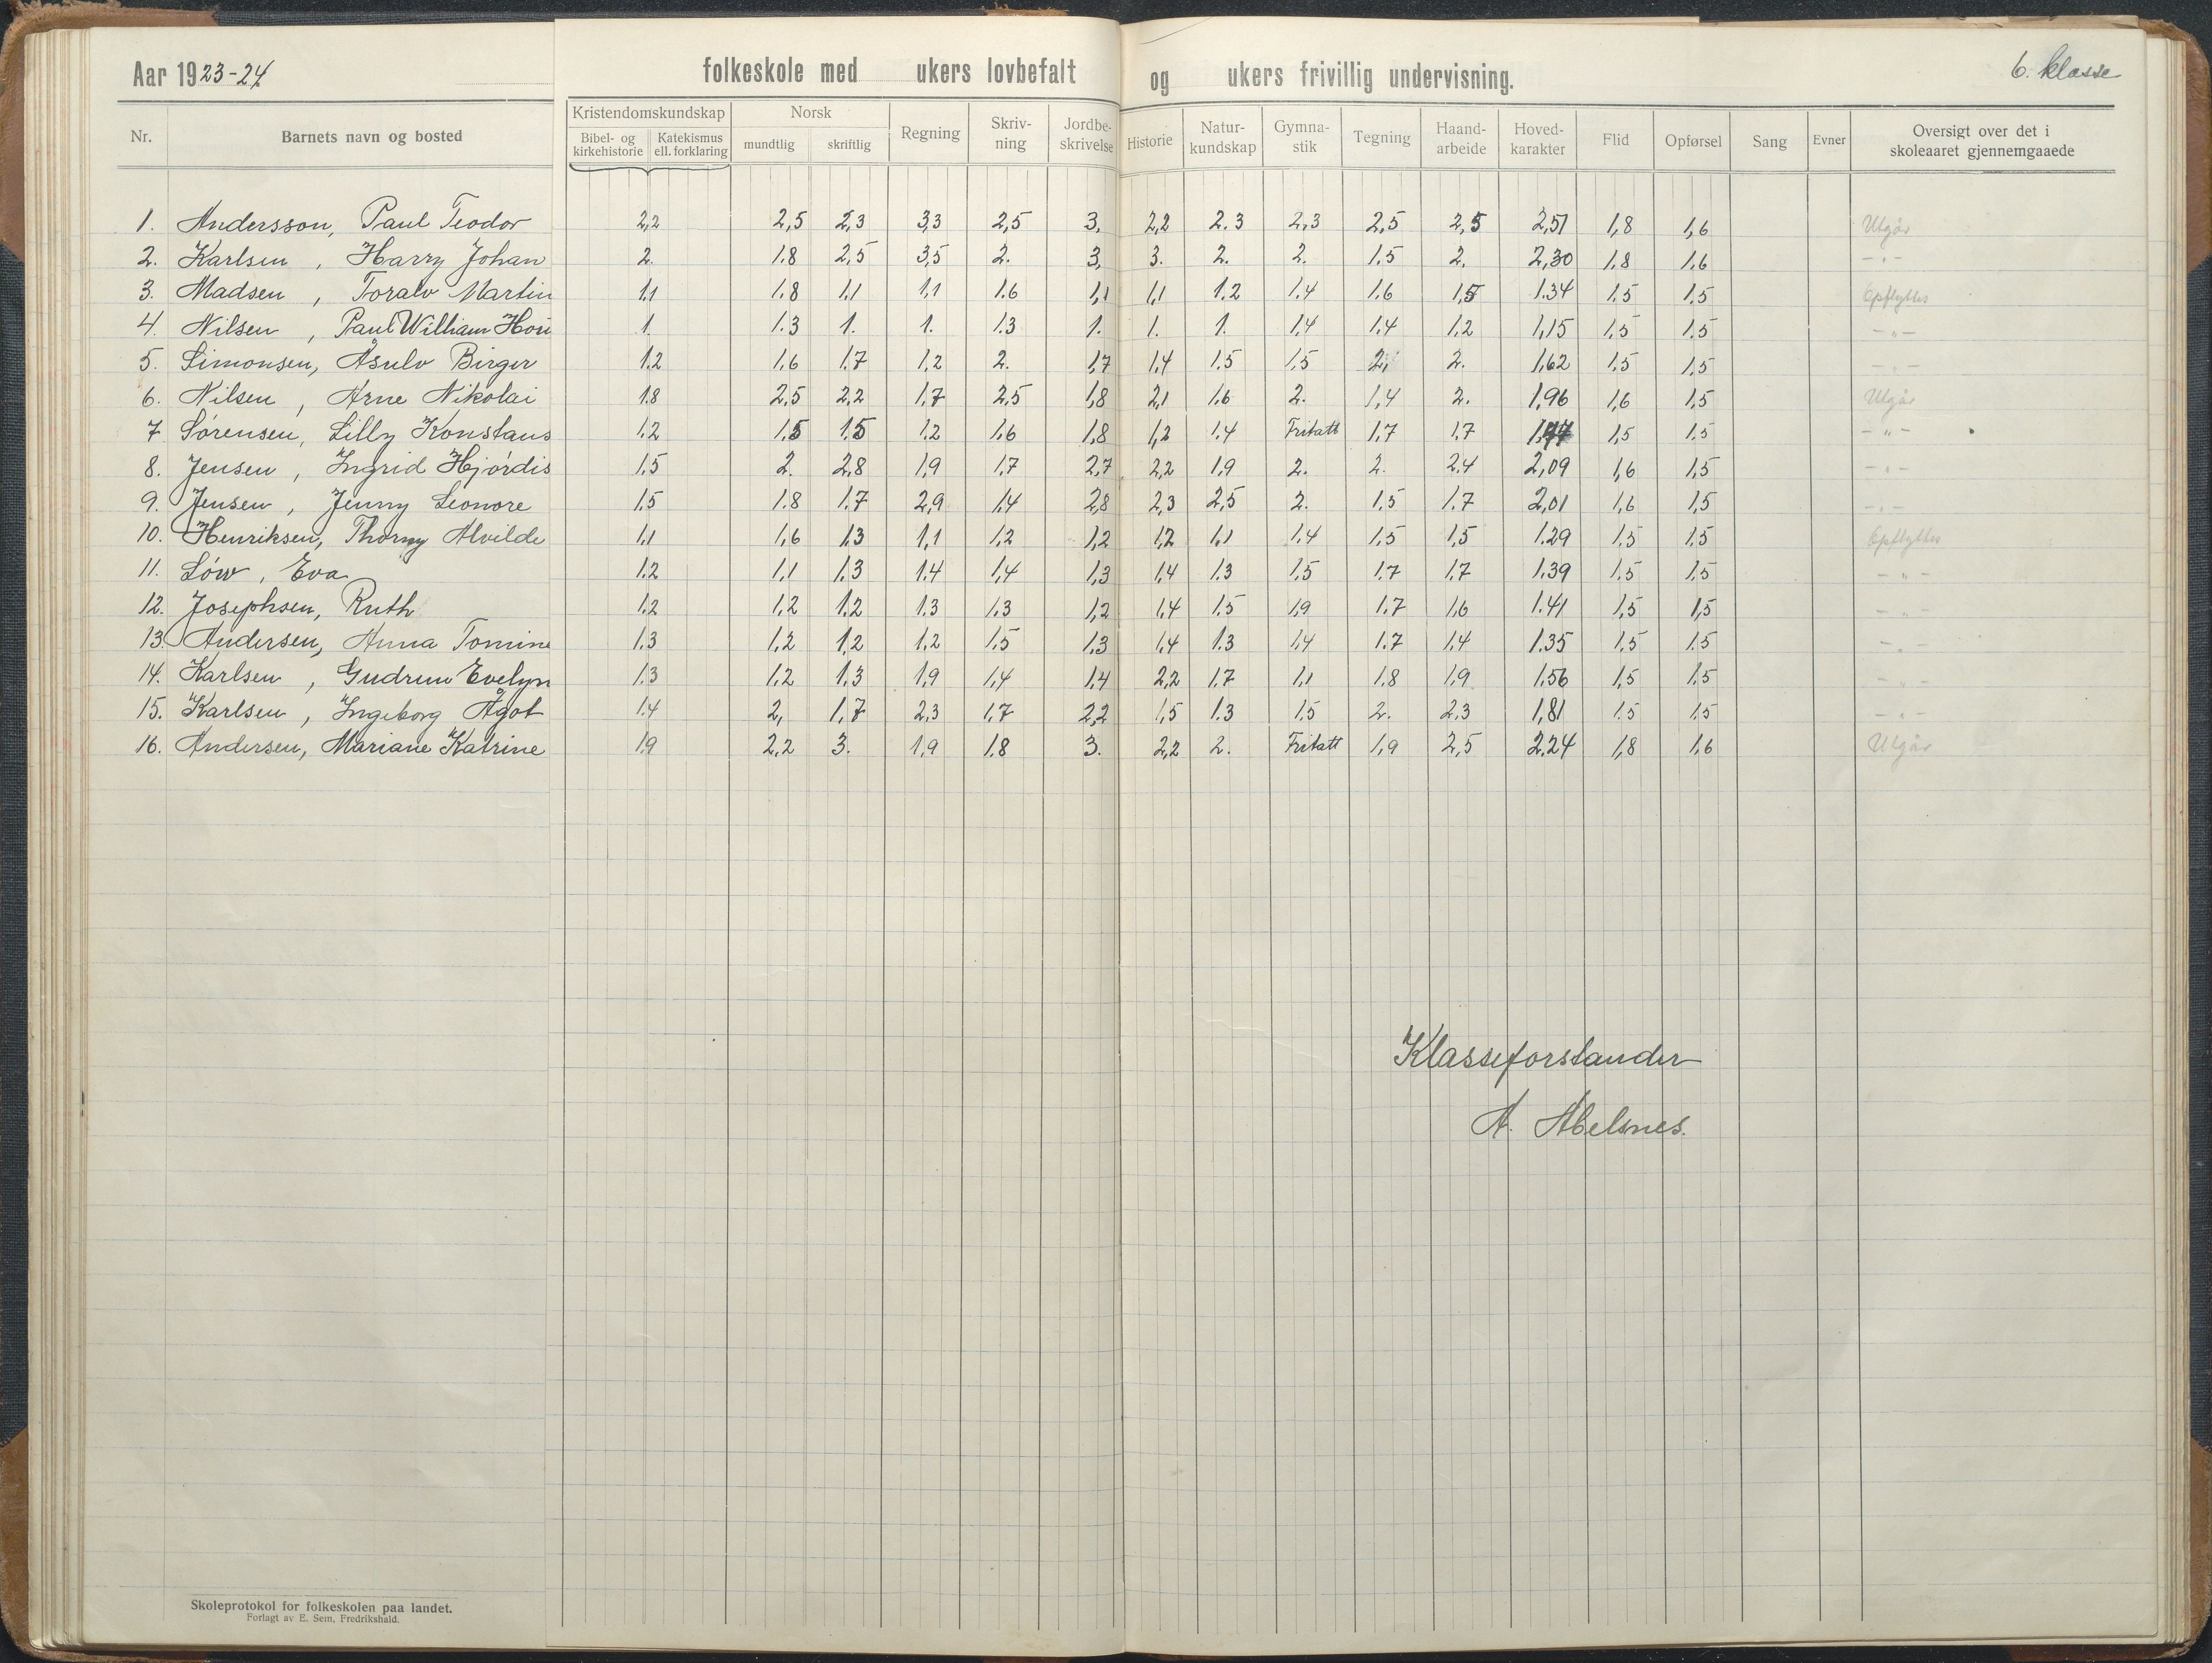 Aar 1923-24 folkeskole med ukers lovbefalt og ukers frivillig undervisning. 6. klasse
Nr. Barnets navn og bosted Kristendomskundskap Bibel- og kirkehistorie Katekismus ell. forklaring Norsk mundtlig skriftlig Regning Skriv-ning Jordbe-skrivelse Historie Natur-kundskap Gymna-stik Tegning Haand-arbeide Hoved-karakter Flid Opførsel Sang Evner Oversigt over det i skoleaaret gjennemgaaede
1. Andersson, Paul Teodor 2,2 2,5 2,3 3,3 2,5 3, 2,2 2.3 2,3 2,5 2,5 2,51 1,8 1,6 Utgår
2. Karlsen, Harry Johan 2. 1.8 2,5 3,5 2. 3, 3. 2. 2. 1.5 2. 2,30 1.8 1.6 -"-
3. Madsen, Toralv Martin 1.1 1.8 1,1 1,1 1.6 1,1 1,1 1.2 1.4 1.6 1,5 1.34 1.5 1.5 Opflyttes
4. Nilsen, Paul William 1 1.3 1. 1. 1.3 1. 1. 1. 1,4 1.4 1.2 1,15 1,5 1.5 -"-
5. Simonsen, Åsulv Birger 1.2 1,6 1.7 1,2 2. 1,7 1.4 1.5 1,5 2, 2. 1,62 1.5 1.5 -"-
6. Nilsen, Arne Nikolai 1.8 2,5 2.2 1.7 2.5 1,8 2,1 1.6 2. 1,4 2. 1,96 1,6 1,5 Utgår
7. Sørensen, Lilly Konstans 1.2 1.5 1.5 1.2 1.6 1.8 1,2 1.4 Fritatt 1.7 1.7 1,5 1.5 -"-
8. Jensen, Ingrid Hjørdis 1.5 2. 2.8 1.9 1.7 2,7 2,2 1,9 2. 2. 2.4 2,09 1,6 1.5 -"-
9. Jensen, Jenny Leonore 1.5 1.8 1.7 2,9 1.4 2,8 2,3 2,5 2. 1.5 1.7 2,01 1,6 1,5 -"-
10. Henriksen, Thorny Alvilde 1,1 1,6 1.3 1,1 1,2 1,2 1,2 1,1 1.4 1.5 1,5 1.29 1.5 1.5 Opflyttes
11. Löw, Eva 1.2 1,1 1.3 1.4 1,4 1,3 1,4 1.3 1,5 1.7 1.7 1.39 1.5 1.5 -"-
12. Josephsen, Ruth 1.2 1,2 1.2 1.3 1.3 1,2 1.4 1.5 1,9 1.7 1,6 1.41 1,5 1,5 -"-
13. Andersen, Anna Tomine 1.3 1,2 1,2 1,2 1.5 1.3 1.4 1.3 1,4 1.7 1,4 1.35 1.5 1.5 -"-
14. Karlsen, Gudrun Evelyn 1.3 1.2 1.3 1,9 1,4 1,4 2,2 1,7 1,1 1.8 1.9 1.56 1,5 1.5 -"-
15. Karlsen, Ingeborg Ågot 1.4 2, 1,7 2,3 1.7 2,2 1,5 1.3 1.5 2. 2.3 1,81 1.5 1.5 -"-
16. Andersen, Mariane Katrine 1.9 2,2 3. 1,9 1.8 3. 2,2 2. Fritatt 1,9 2,5 2,24 1,8 1,6 Utgår
Klasseforstander
A. Abelsnes.
Skoleprotokol for folkeskolen paa landet.
Forlagt av E. Sem, Fredrikshald.